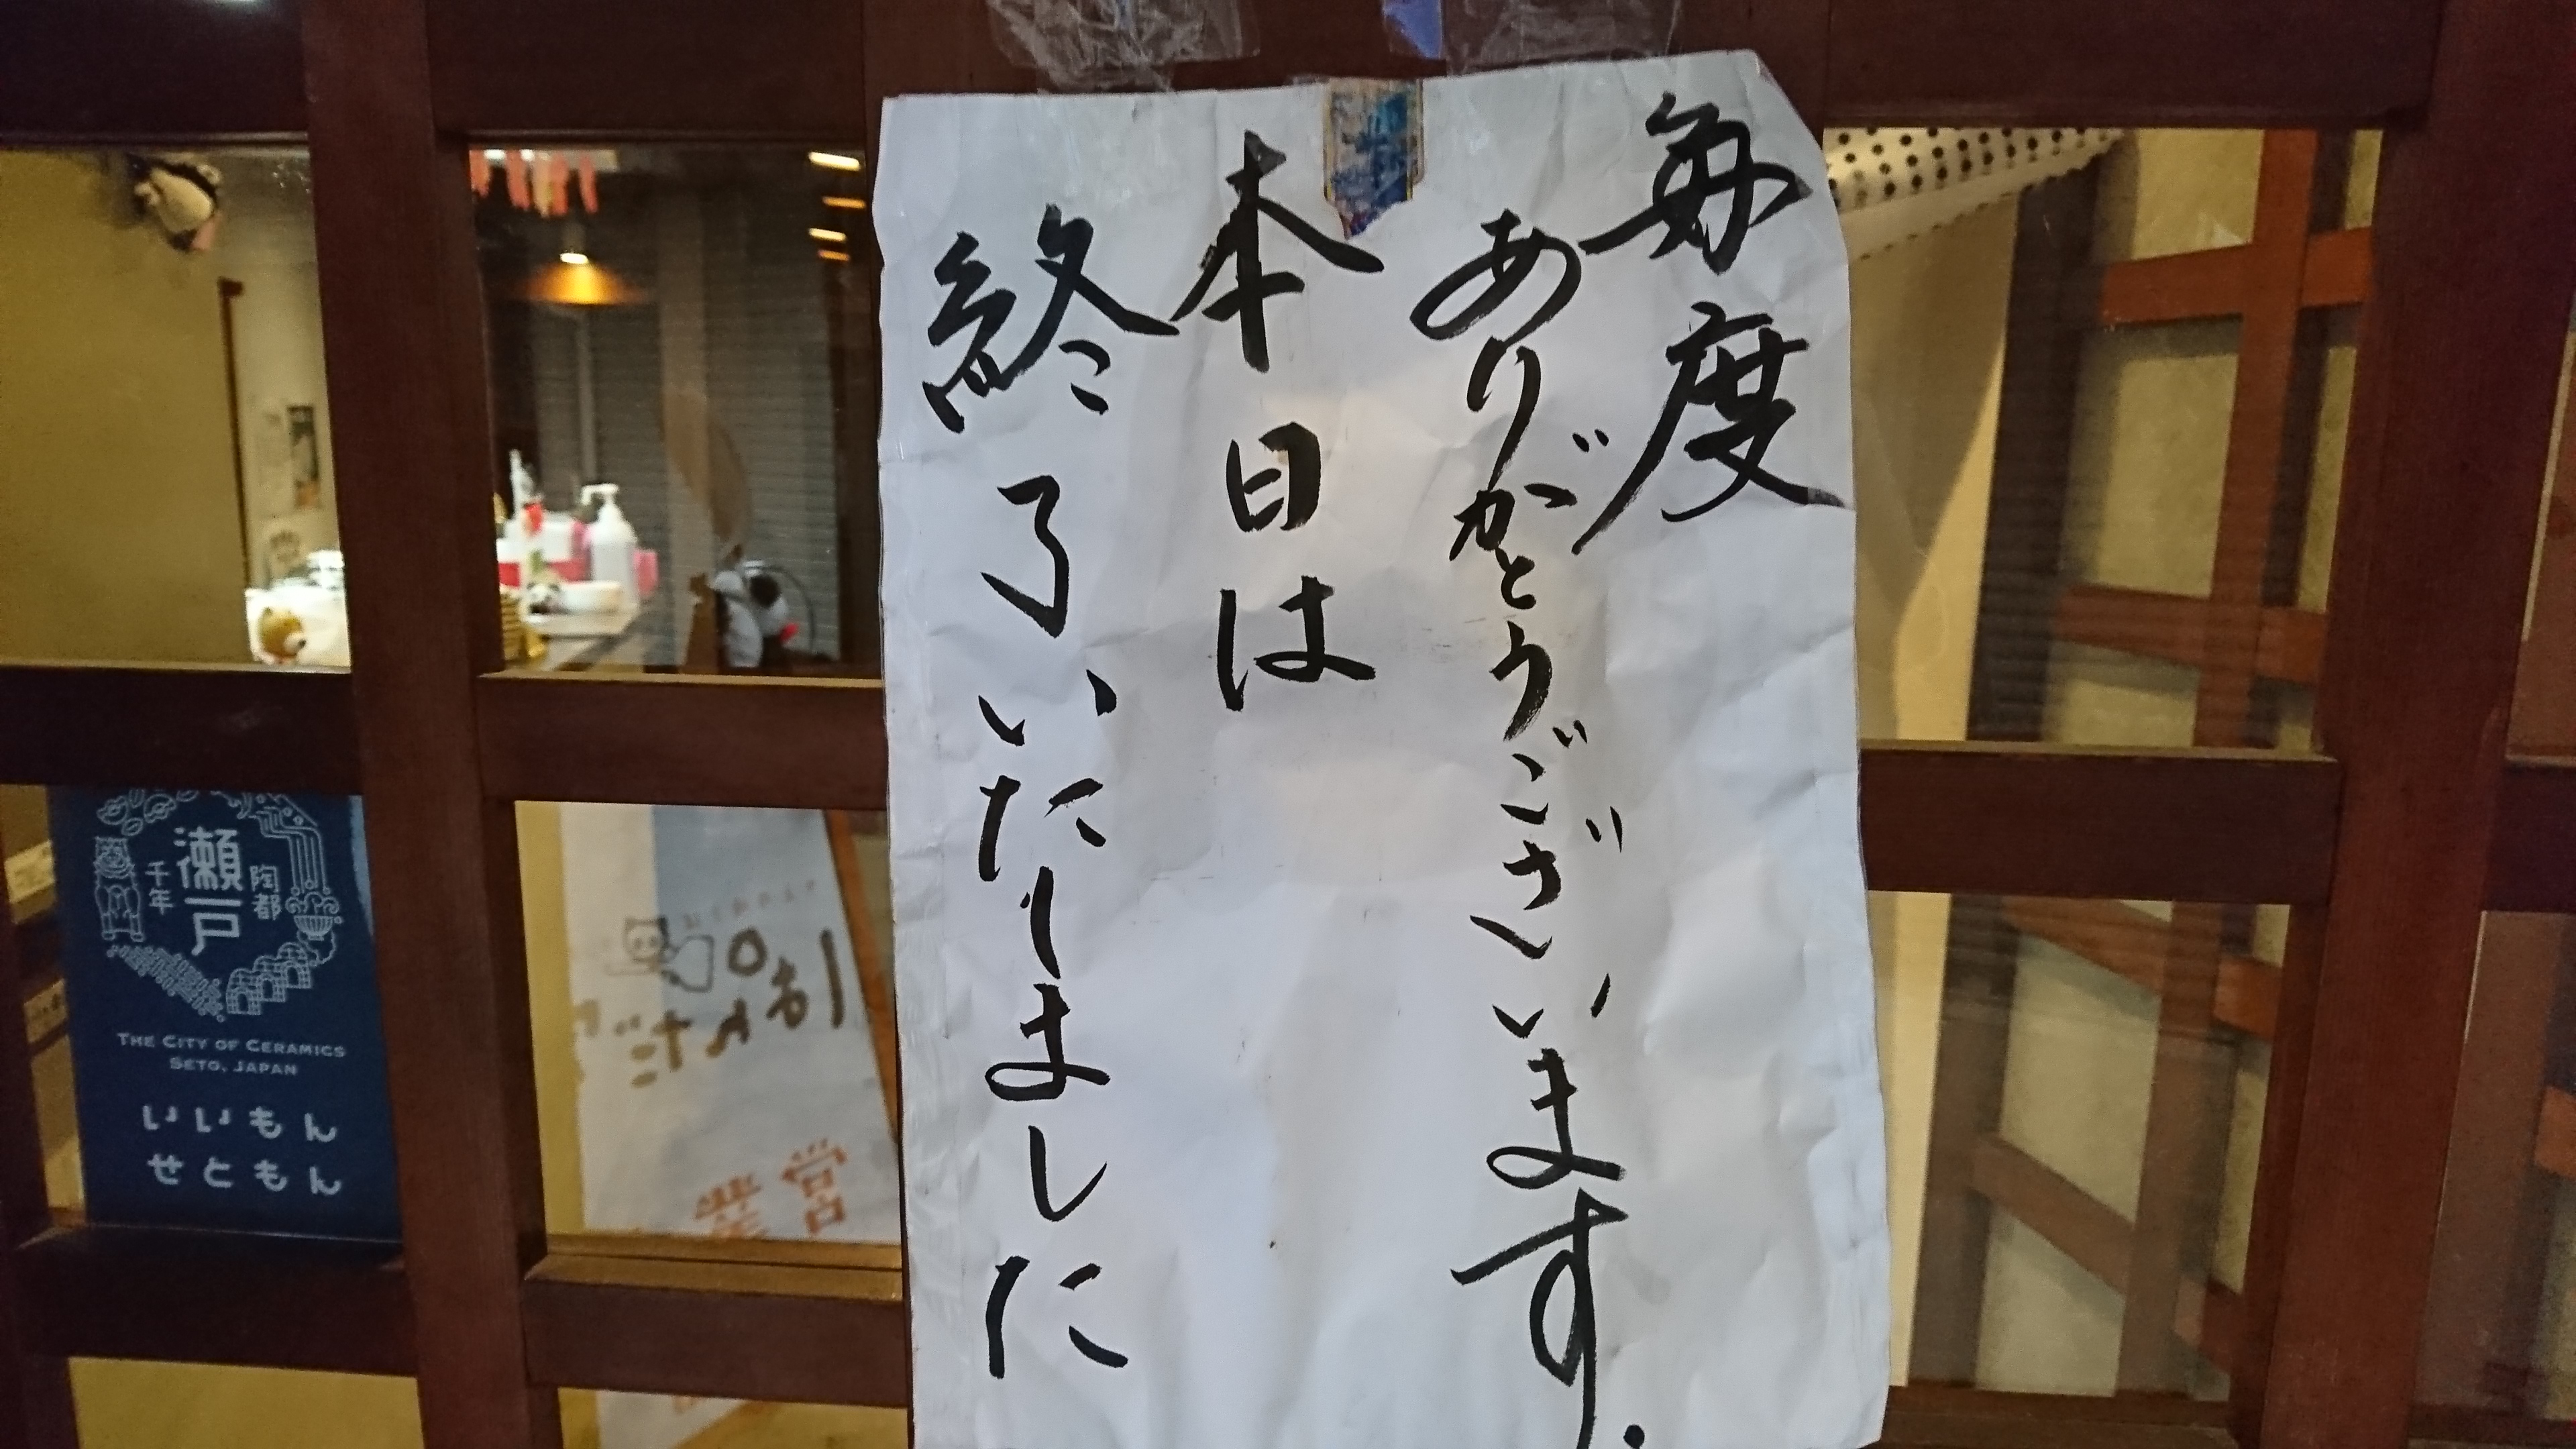 毎度
ありがとうございます.
本日は
終了いたしました
陶都
瀬戸
千年
THE CITY OF CERAMICS
SETO, JAPAN
いいもん
せともん
営業